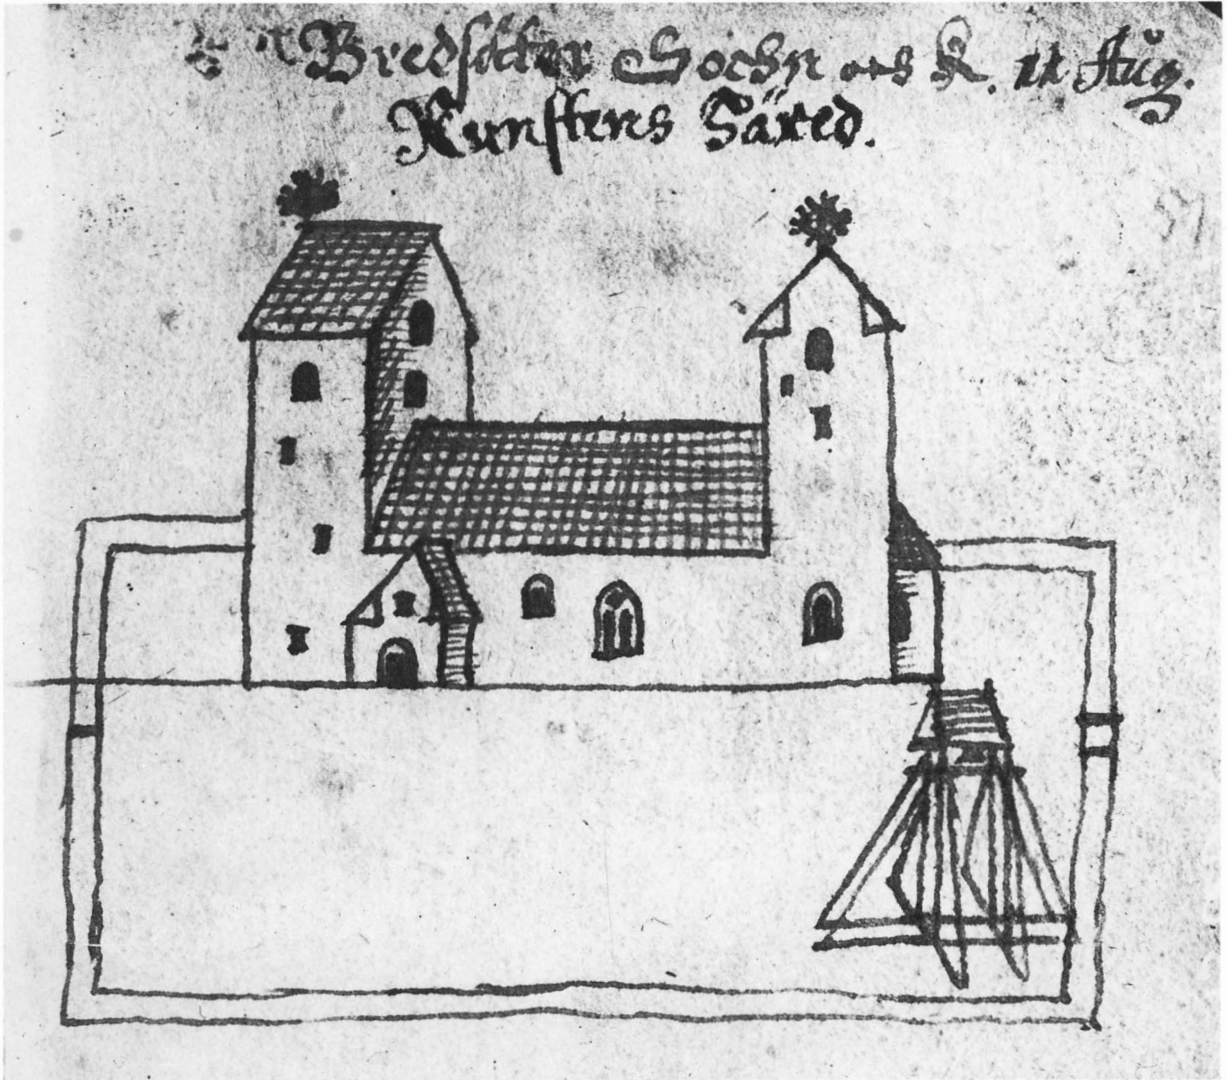 Bredsätter Sochn och K. 11 Aug.
Runstens Häred.